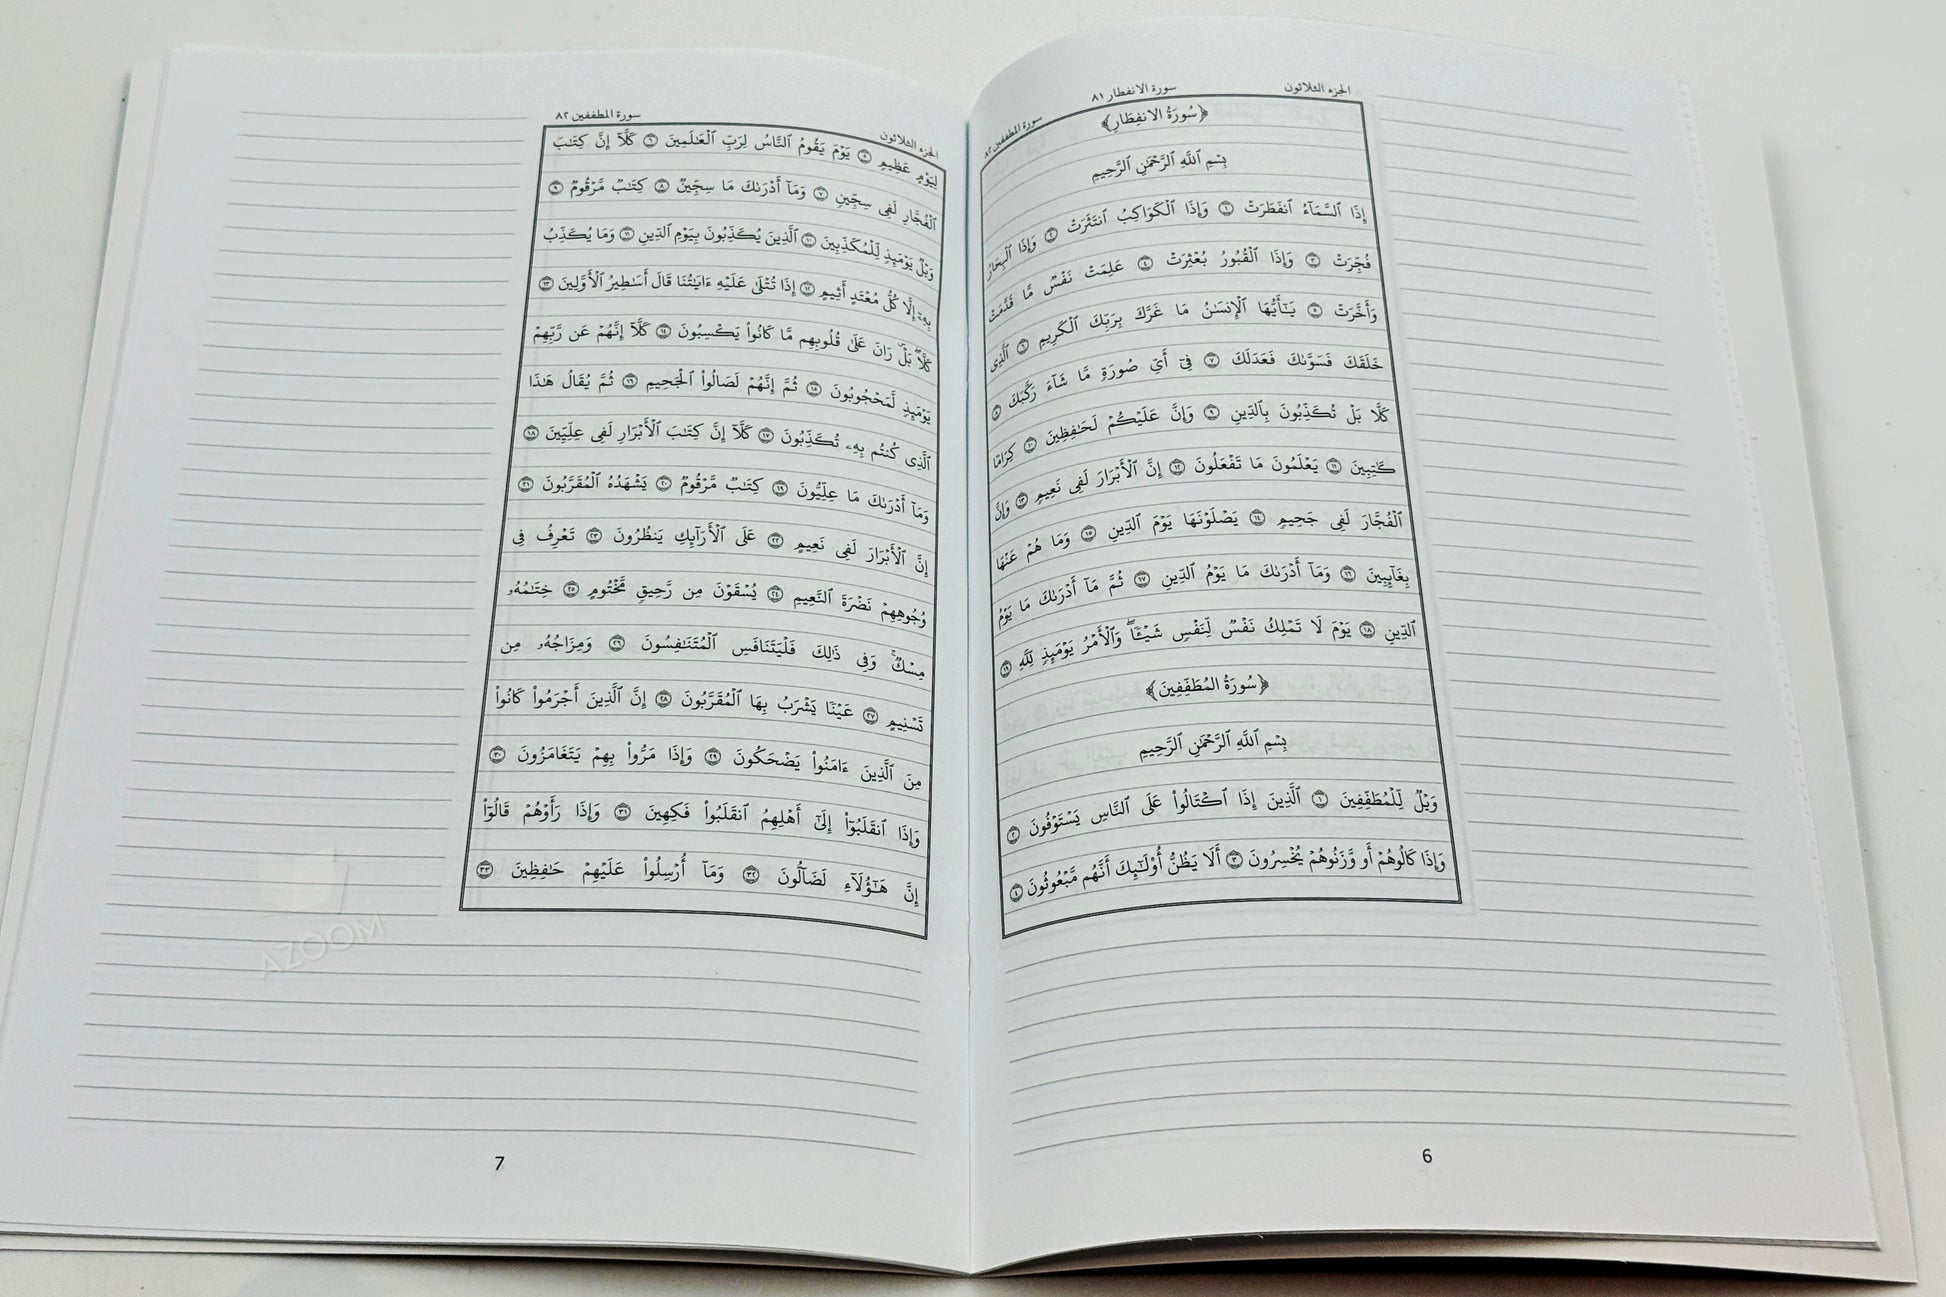 الجزء الثلاثون
سورة الانفطار ٨١
سورة المطففين ٨٢
﴿سُورَةُ الانفِطَارِ﴾
بِسْمِ ٱللَّهِ ٱلرَّحْمَٰنِ ٱلرَّحِيمِ
إِذَا ٱلسَّمَآءُ ٱنفَطَرَتْ ١ وَإِذَا ٱلْكَوَاكِبُ ٱنتَثَرَتْ ٢ وَإِذَا ٱلْبِحَارُ
فُجِّرَتْ ٣ وَإِذَا ٱلْقُبُورُ بُعْثِرَتْ ٤ عَلِمَتْ نَفْسٌ مَّا قَدَّمَتْ
وَأَخَّرَتْ ٥ يَـٰٓأَيُّهَا ٱلْإِنسَـٰنُ مَا غَرَّكَ بِرَبِّكَ ٱلْكَرِيمِ ٦ ٱلَّذِى
خَلَقَكَ فَسَوَّىٰكَ فَعَدَلَكَ ٧ فِىٓ أَىِّ صُورَةٍ مَّا شَآءَ رَكَّبَكَ ٨
كَلَّا بَلْ تُكَذِّبُونَ بِٱلدِّينِ ٩ وَإِنَّ عَلَيْكُمْ لَحَـٰفِظِينَ ١٠ كِرَامًا
كَـٰتِبِينَ ١١ يَعْلَمُونَ مَا تَفْعَلُونَ ١٢ إِنَّ ٱلْأَبْرَارَ لَفِى نَعِيمٍ ١٣ وَإِنَّ
ٱلْفُجَّارَ لَفِى جَحِيمٍ ١٤ يَصْلَوْنَهَا يَوْمَ ٱلدِّينِ ١٥ وَمَا هُمْ عَنْهَا
بِغَآئِبِينَ ١٦ وَمَآ أَدْرَىٰكَ مَا يَوْمُ ٱلدِّينِ ١٧ ثُمَّ مَآ أَدْرَىٰكَ مَا يَوْمُ
ٱلدِّينِ ١٨ يَوْمَ لَا تَمْلِكُ نَفْسٌ لِّنَفْسٍ شَيْـًٔا ۖ وَٱلْأَمْرُ يَوْمَئِذٍ لِّلَّهِ ١٩
﴿سُورَةُ المُطَفِّفِينَ﴾
بِسْمِ ٱللَّهِ ٱلرَّحْمَٰنِ ٱلرَّحِيمِ
وَيْلٌ لِّلْمُطَفِّفِينَ ١ ٱلَّذِينَ إِذَا ٱكْتَالُوا۟ عَلَى ٱلنَّاسِ يَسْتَوْفُونَ ٢
وَإِذَا كَالُوهُمْ أَو وَّزَنُوهُمْ يُخْسِرُونَ ٣ أَلَا يَظُنُّ أُو۟لَـٰٓئِكَ أَنَّهُم مَّبْعُوثُونَ ٤
6
الجزء الثلاثون
سورة المطففين ٨٢
لِيَوْمٍ عَظِيمٍ ٥ يَوْمَ يَقُومُ ٱلنَّاسُ لِرَبِّ ٱلْعَـٰلَمِينَ ٦ كَلَّآ إِنَّ كِتَـٰبَ
ٱلْفُجَّارِ لَفِى سِجِّينٍ ٧ وَمَآ أَدْرَىٰكَ مَا سِجِّينٌ ٨ كِتَـٰبٌ مَّرْقُومٌ ٩
وَيْلٌ يَوْمَئِذٍ لِّلْمُكَذِّبِينَ ١٠ ٱلَّذِينَ يُكَذِّبُونَ بِيَوْمِ ٱلدِّينِ ١١ وَمَا يُكَذِّبُ
بِهِۦٓ إِلَّا كُلُّ مُعْتَدٍ أَثِيمٍ ١٢ إِذَا تُتْلَىٰ عَلَيْهِ ءَايَـٰتُنَا قَالَ أَسَـٰطِيرُ ٱلْأَوَّلِينَ ١٣
كَلَّا ۖ بَلْ ۜ رَانَ عَلَىٰ قُلُوبِهِم مَّا كَانُوا۟ يَكْسِبُونَ ١٤ كَلَّآ إِنَّهُمْ عَن رَّبِّهِمْ
يَوْمَئِذٍ لَّمَحْجُوبُونَ ١٥ ثُمَّ إِنَّهُمْ لَصَالُوا۟ ٱلْجَحِيمِ ١٦ ثُمَّ يُقَالُ هَـٰذَا
ٱلَّذِى كُنتُم بِهِۦ تُكَذِّبُونَ ١٧ كَلَّآ إِنَّ كِتَـٰبَ ٱلْأَبْرَارِ لَفِى عِلِّيِّينَ ١٨
وَمَآ أَدْرَىٰكَ مَا عِلِّيُّونَ ١٩ كِتَـٰبٌ مَّرْقُومٌ ٢٠ يَشْهَدُهُ ٱلْمُقَرَّبُونَ ٢١
إِنَّ ٱلْأَبْرَارَ لَفِى نَعِيمٍ ٢٢ عَلَى ٱلْأَرَآئِكِ يَنظُرُونَ ٢٣ تَعْرِفُ فِى
وُجُوهِهِمْ نَضْرَةَ ٱلنَّعِيمِ ٢٤ يُسْقَوْنَ مِن رَّحِيقٍ مَّخْتُومٍ ٢٥ خِتَـٰمُهُۥ
مِسْكٌ ۚ وَفِى ذَٰلِكَ فَلْيَتَنَافَسِ ٱلْمُتَنَـٰفِسُونَ ٢٦ وَمِزَاجُهُۥ مِن
تَسْنِيمٍ ٢٧ عَيْنًا يَشْرَبُ بِهَا ٱلْمُقَرَّبُونَ ٢٨ إِنَّ ٱلَّذِينَ أَجْرَمُوا۟ كَانُوا۟
مِنَ ٱلَّذِينَ ءَامَنُوا۟ يَضْحَكُونَ ٢٩ وَإِذَا مَرُّوا۟ بِهِمْ يَتَغَامَزُونَ ٣٠
وَإِذَا ٱنقَلَبُوٓا۟ إِلَىٰٓ أَهْلِهِمُ ٱنقَلَبُوا۟ فَكِهِينَ ٣١ وَإِذَا رَأَوْهُمْ قَالُوٓا۟
إِنَّ هَـٰٓؤُلَآءِ لَضَآلُّونَ ٣٢ وَمَآ أُرْسِلُوا۟ عَلَيْهِمْ حَـٰفِظِينَ ٣٣
AZOOM
7